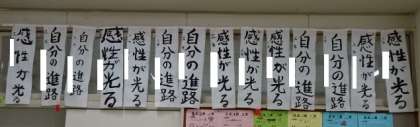 感性が光る
感性が光る
自分の進路
自分の進路
感性が光る
感性が光る
感性が光る
自分の進路
自分の進路
感性が光る
感性が光る
自分の進路
自分の進路
感性が光る